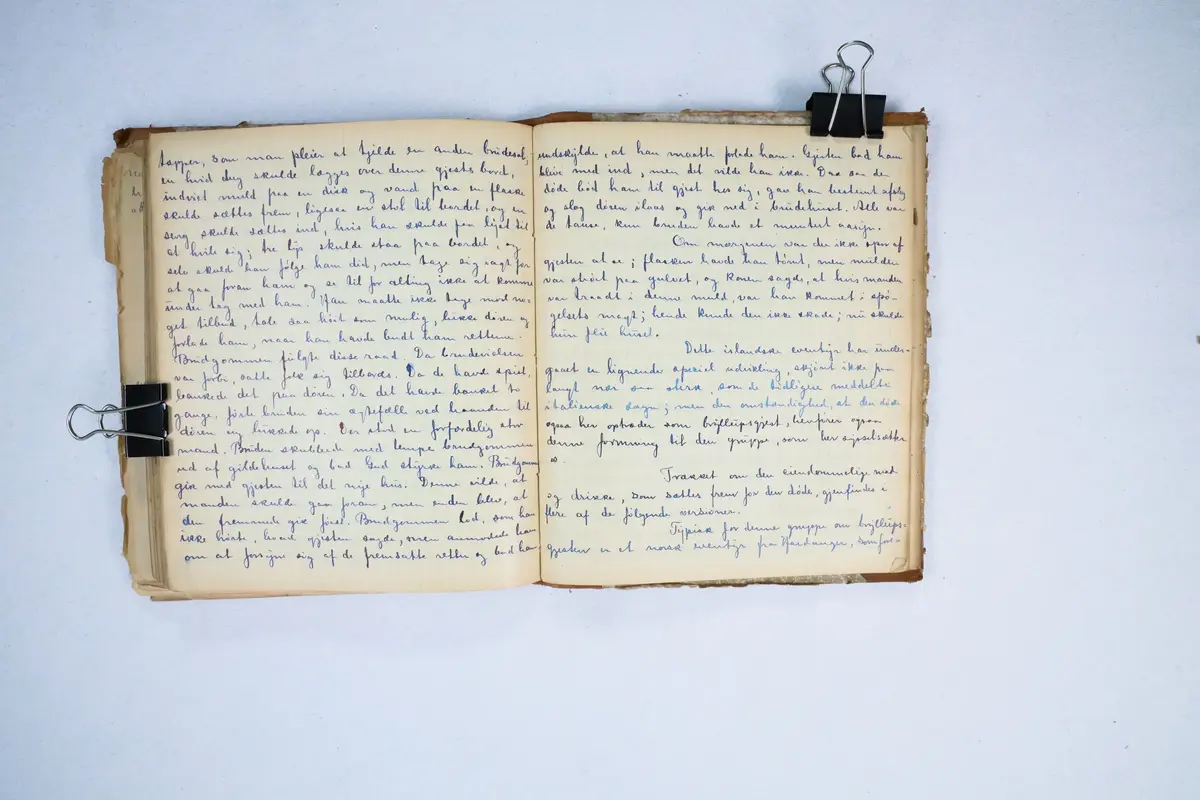 tæpper, som man pleier at tjelde en anden brudesal,
en hvid dug skulde lægges over denne gjests bord,
indviet muld paa en disk og vand paa en flaske
skulde sættes frem, ligesaa en stol til bordet, og en
seng skulde sættes ind, hvis han skulde faa lyst til
at hvile sig; tre lys skulde staa paa bordet, og
selv skuld han følge ham did, men tage sig vagt for
at gaa foran ham og se til for alting ikke at komme
under tag med ham. Han maatte ikke tage mod no-
get tilbud, tale saa høit som mulig, lukke døren og
forlade ham, naar han havde budt ham rettene.
Brudgommen fulgte disse raad. Da brudevielsen
var forbi, satte folk sig tilbords. Da de havde spist,
bankede det paa døren. Da det havde banket to
gange, førte bruden sin ægtefælle ved haanden til
døren og lukkede op. Der stod en forfærdelig stor
mand. Bruden skubbede med lempe brudgommen
ud af gildehuset og bad Gud styrke ham. Brudgommen
gik med gjesten til det nye hus. Denne vilde, at
manden skulde gaa foran, men enden blev, at
den fremmede gik først. Brudgommen lod, som han
ikke hørte, hvad gjesten sagde, men anmodede ham
om at forsyne sig af de fremsatte retter og bad ham
undskylde, at han maatte forlade ham. Gjesten bad ham
blive med ind, men det vilde han ikke. Da saa den
døde bød ham til gjest hos sig, gav han bestemt afslag
og slog døren ilaas og gik ned i brudehuset. Alle var
de tause, kun bruden havde et muntert aasyn.
Om morgenen var der ikke spor af
gjesten at se; flasken havde han tømt, men mulden
var strøet paa gulvet, og konen sagde, at hvis manden
var traadt i denne muld, var han kommet i spø-
gelsets magt; hende kunde den ikke skade; nu skulde
hun feie huset.
Dette islandske eventyr har under-
gaaet en lignende speciel udvikling, skjønt ikke paa
langt nær saa sterk, som de tidligere meddelte
italienske sagn; men den omstændighed, at den døde
ogsaa her optræder som bryllupsgjest, henfører ogsaa
denne formning til den gruppe, som her sysselsætter
os.
Trækket om den eiendommelige mad
og drikke, som sættes frem for den døde, gjenfindes i
flere af de følgende versioner.
Typisk for denne gruppe om bryllups-
gjesten er et norsk eventyr fra Hardanger, som for-